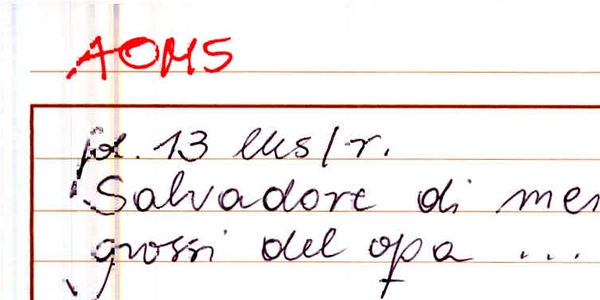 AOM5
fol. 13 Ms/r.
Salvadore di mer
grossi del opa ...